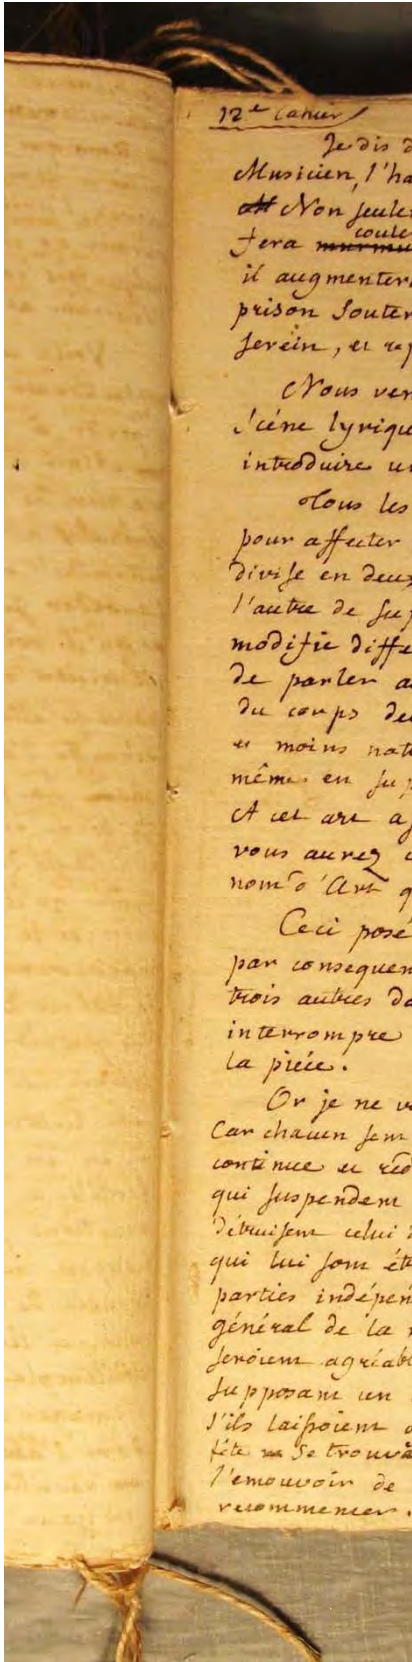 12e Cahier
Je dis d
Musicien, l'ha
Non seule
coule
fera murmu
il augmenter
prison souter
serein, et rep
Nous ver
scéne lyrique
introduire un
Tous les
pour affecter
divise en deux
l'autre de sup
modifie diffe
de parler a
du corps de
et moins nat
même en sup
A cet art a
vous aurez
nom d'Art q
Ceci posé
par consequen
trois autres da
interrompre
la piéce.
Or je ne v
Car chacun sent
continue et réd
qui suspendent
détruisent celui
qui lui sont ét
parties indépen
général de la
seroient agréabl
supposant un
s'ils laissoient
fête se trouva
l'emouvoir de
recommencer.